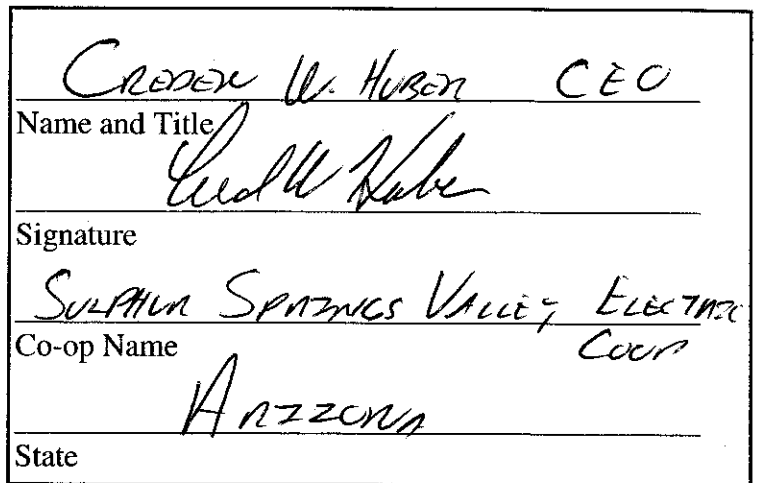 CREDEN W. HUBER CEO
Name and Title
Cred W Huber
Signature
SULPHUR SPRINGS VALLEY ELECTRIC
Co-op Name COOP
ARIZONA
State